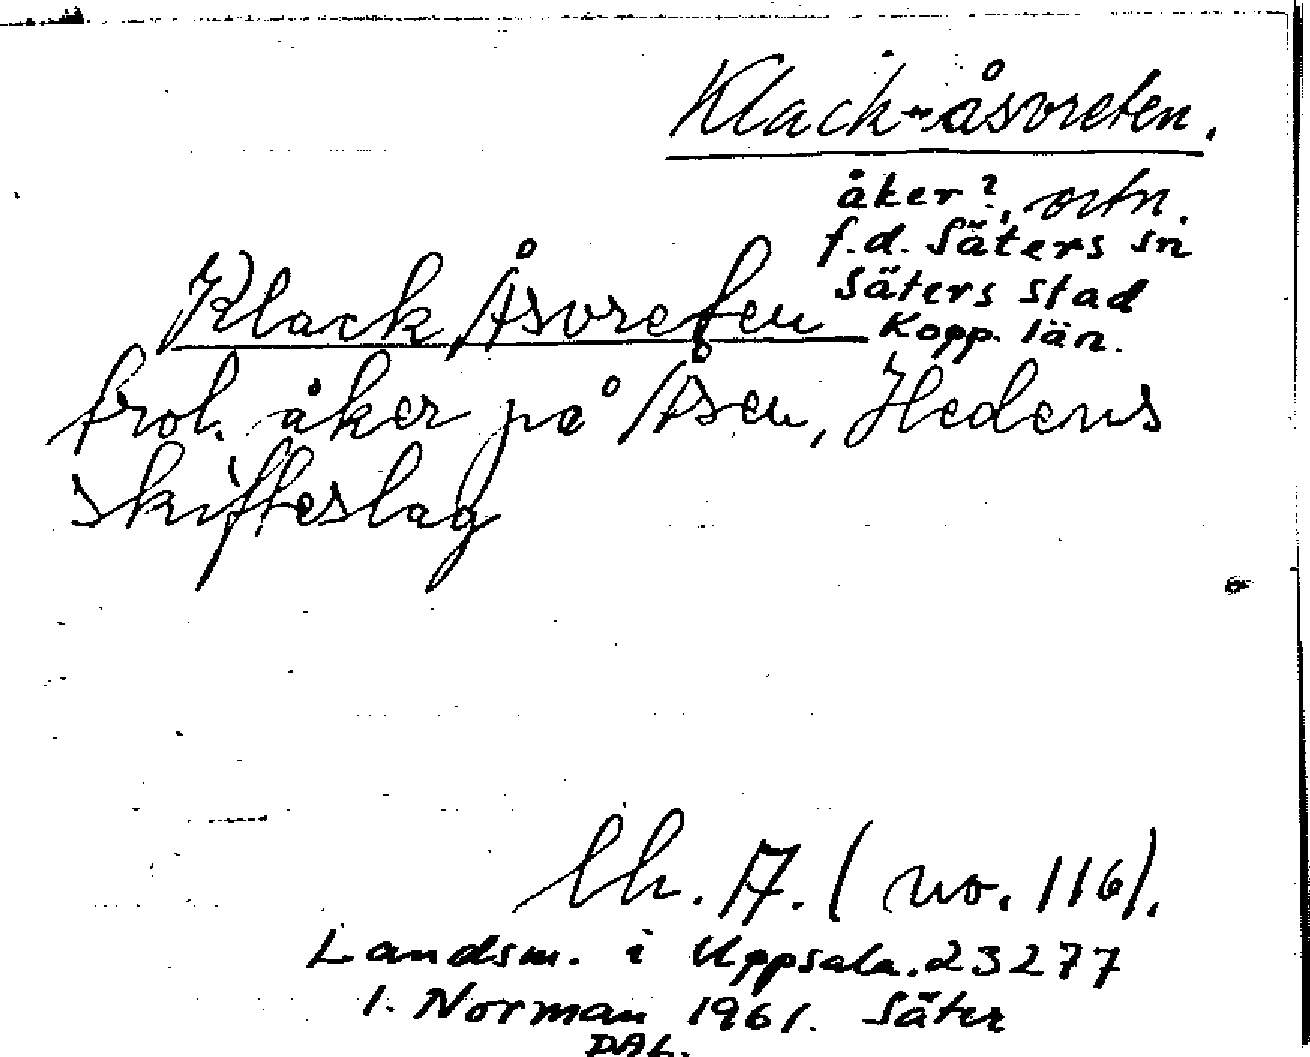 Klack-åsvreten.
åker?, ortn.
f.d. Säters sn
Säters stad
Kopp. län.
Klack Åsvreten
trol. åker på Åsen, Hedens
skifteslag
lh. A. (no. 116).
Landsm. i Uppsala. 23277
I. Norman 1961. Säter
DAL.